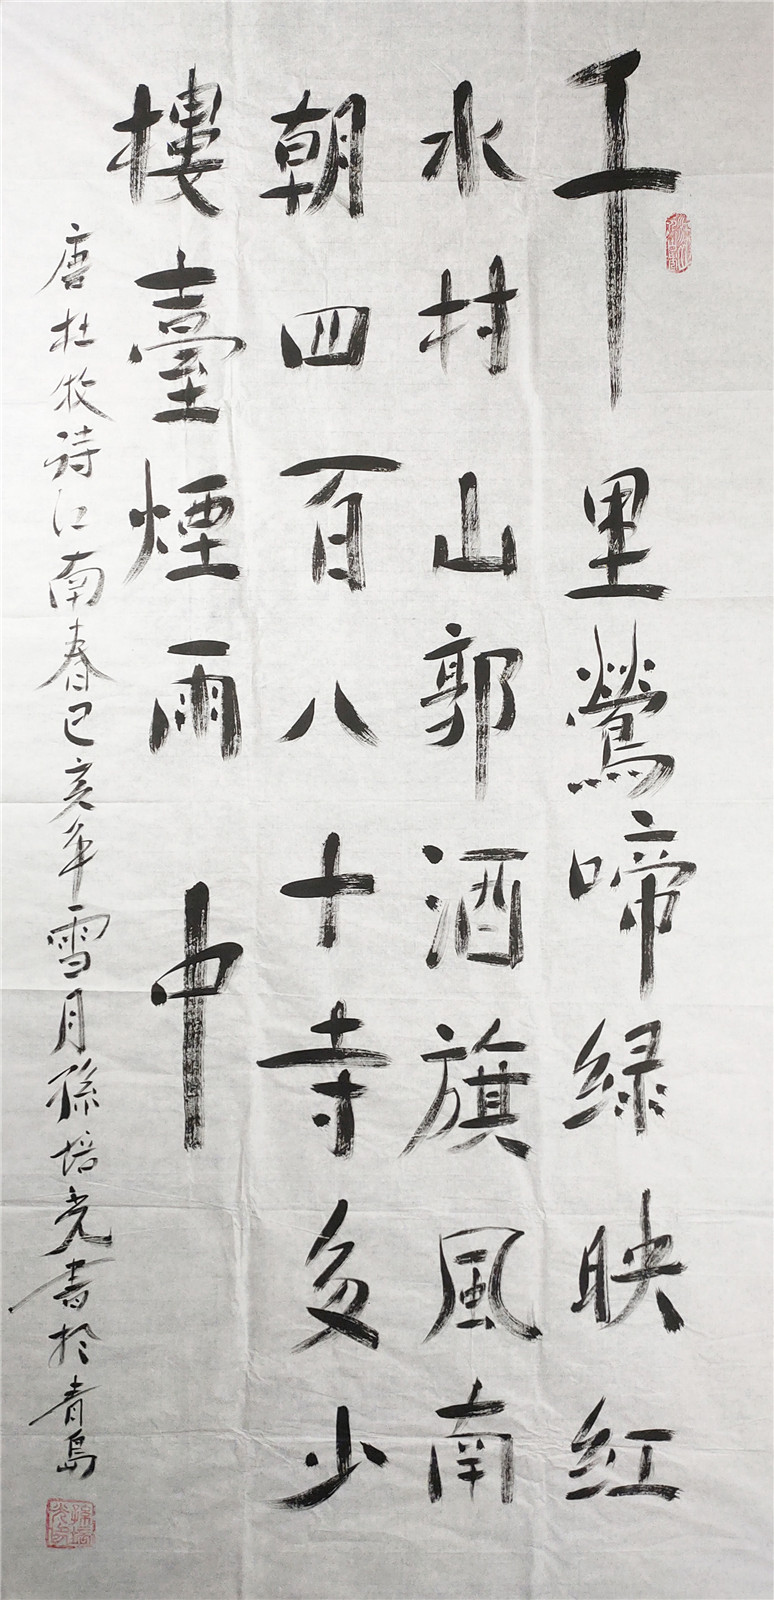 千里鶯啼绿映红
水村山郭酒旗風南
朝四百八十寺多少
樓臺煙雨中
唐杜牧诗江南春己亥年雪月孫培光書於青島